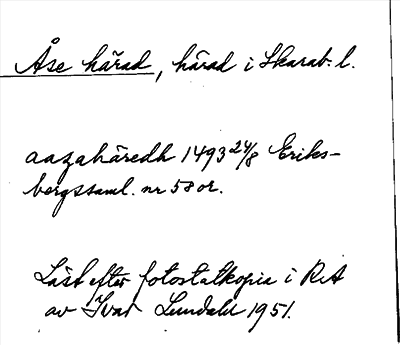 Åse härad, härad i Skarab. l.
aazahäredh 1493 24/8 Eriks-
bergssaml. nr 58 or.
Läst efter fotostatkopia i RA
av Ivar Lundahl 1951.